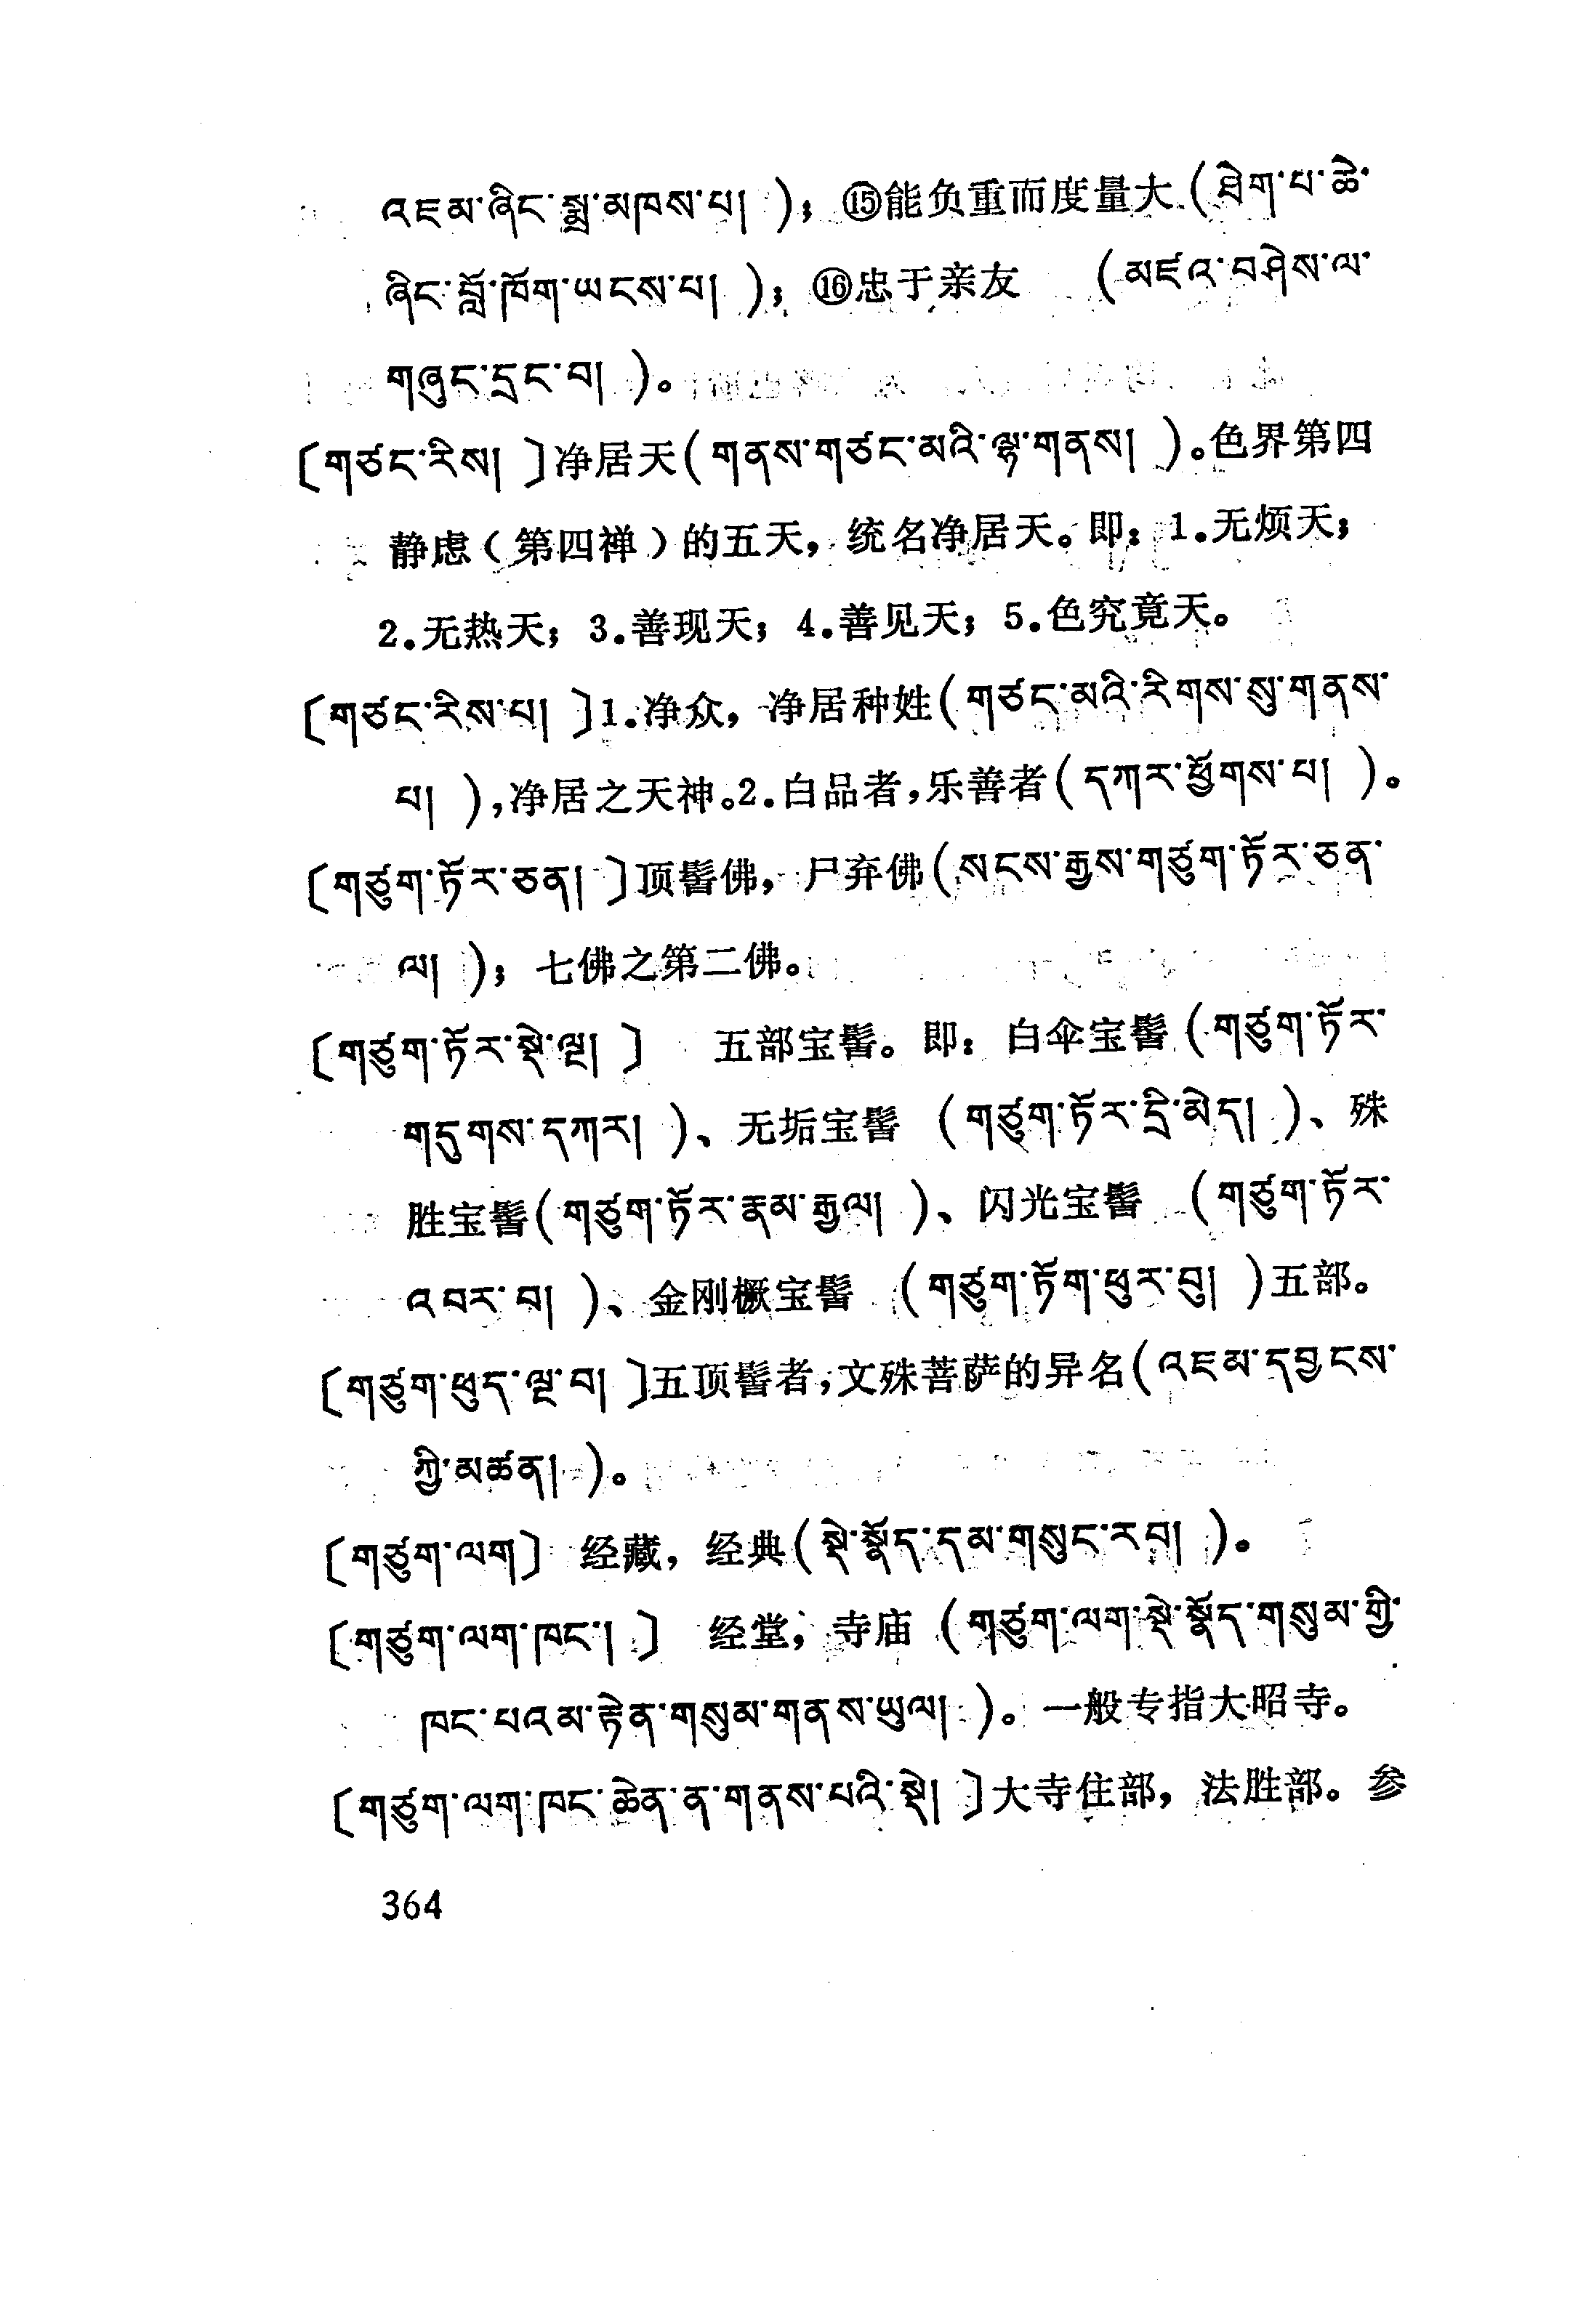 འཇམ་ཞིང་སྨྲ་མཁས་པ། )；⑮能负重而度量大(ཐེག་པ་ཆེ་
ཞིང་བློ་ཁོག་ཡངས་པ། )；⑯忠于亲友 (མཛའ་བཤེས་ལ་
གཞུང་དྲང་བ། )。
〔གཙང་རིས། 〕净居天(གནས་གཙང་མའི་ལྷ་གནས། )。色界第四
静虑(第四禅)的五天，统名净居天。即：1.无烦天；
2.无热天；3.善现天；4.善见天；5.色究竟天。
〔གཙང་རིས་པ། 〕1.净众，净居种姓(གཙང་མའི་རིགས་སུ་གནས་
པ། ),净居之天神。2.白品者,乐善者(དཀར་ཕྱོགས་པ། )。
〔གཙུག་ཏོར་ཅན། 〕顶髻佛，尸弃佛(སངས་རྒྱས་གཙུག་ཏོར་ཅན་
ལ། )；七佛之第二佛。
〔གཙུག་ཏོར་སྡེ་ལྔ། 〕 五部宝髻。即：白伞宝髻(གཙུག་ཏོར་
གདུགས་དཀར། )、无垢宝髻 (གཙུག་ཏོར་དྲི་མེད། )、殊
胜宝髻(གཙུག་ཏོར་རྣམ་རྒྱལ། )、闪光宝髻 (གཙུག་ཏོར་
འབར་བ། )、金刚橛宝髻 (གཙུག་ཏོག་ཕུར་བུ། )五部。
〔གཙུག་ཕུད་ལྔ་བ། 〕五顶髻者,文殊菩萨的异名(འཇམ་དབྱངས་
ཀྱི་མཚན། )。
〔གཙུག་ལག〕 经藏，经典(སྡེ་སྣོད་དམ་གསུང་རབ། )。
〔གཙུག་ལག་ཁང་། 〕 经堂，寺庙 (གཙུག་ལག་སྡེ་སྣོད་གསུམ་གྱི་
ཁང་པའམ་རྟེན་གསུམ་གནས་ཡུལ། )。一般专指大昭寺。
〔གཙུག་ལག་ཁང་ཆེན་ན་གནས་པའི་སྡེ། 〕大寺住部，法胜部。参
364